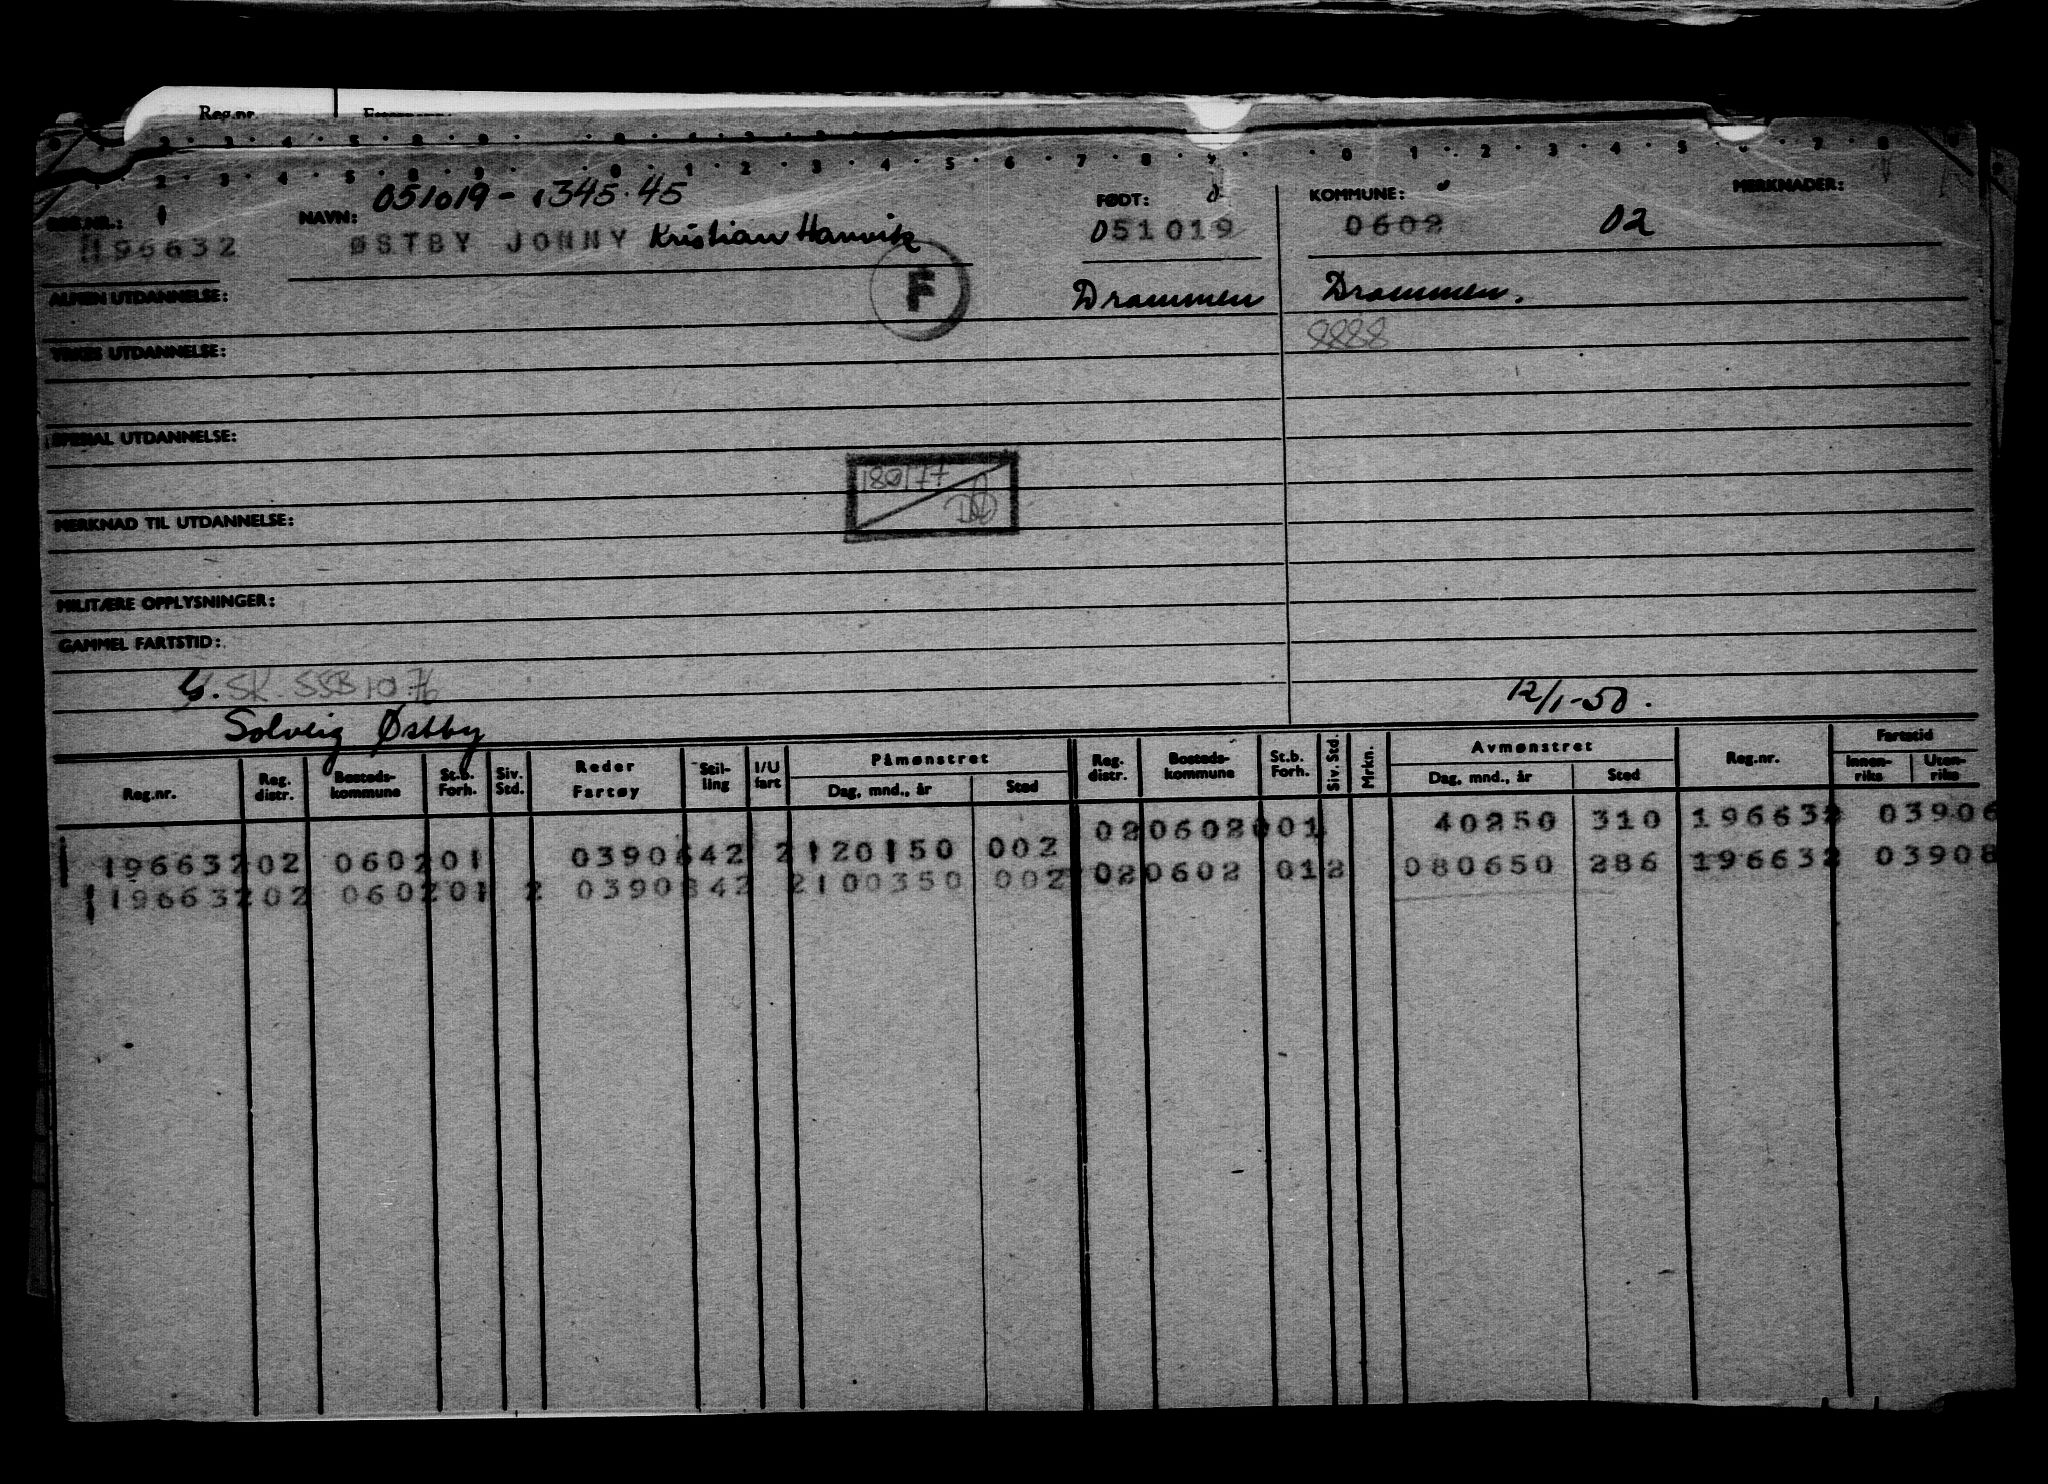 Reg.nr.
051019 - 1345.45
REG.NR.: NAVN: FØDT: KOMMUNE: MERKNADER:
196632 ØSTBY JONNY Kristian Hanvik 051019 0602 02
F
ALMEN UTDANNELSE: Drammen Drammen.
8888
YRKES UTDANNELSE:
SPESIAL UTDANNELSE:
180177
MERKNAD TIL UTDANNELSE:
MILITÆRE OPPLYSNINGER:
GAMMEL FARTSTID:
SK. SSB 10.76
12/1-50.
Solveig Østby
Reg.nr. Reg. distr. Bosteds-kommune St.b. Forh. Siv. Std. Reder Fartøy Stil-ling I/U fart Påmønstret Dag, mnd., år Sted Reg. distr. Bosteds-kommune St.b. Forh. Siv. Std. Mrkn. Avmønstret Dag, mnd., år Sted Reg.nr. Fartstid Innen-riks Uten-riks
196632 02 0602 01 03906 42 2 120150 002 02 0602 001 40250 310 196632 03906
196632 02 0602 01 2 03908 42 2 100350 002 02 0602 01 2 080650 286 196632 03908